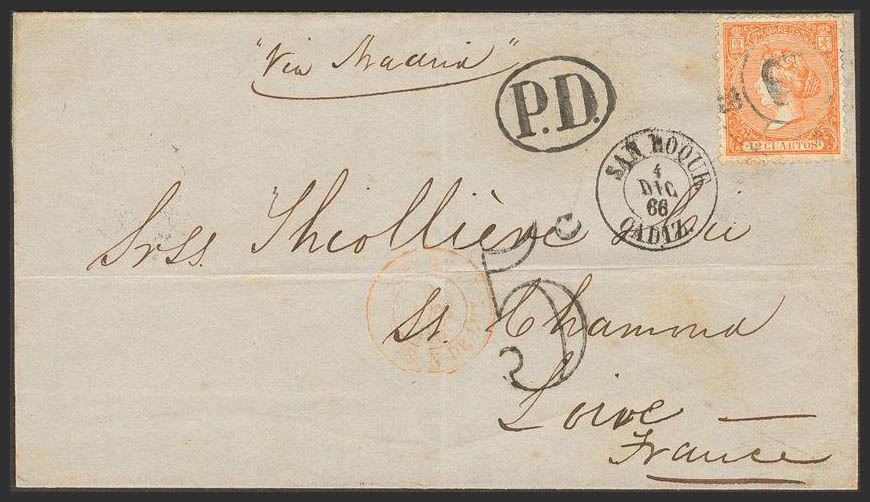 "Via Madrid"
P.D.
CORREOS
12 CUARTOS
SAN ROQUE
4
DIC
66
CADIZ.
Srss. Thiollière
5
St. Chamond
Loire —
France